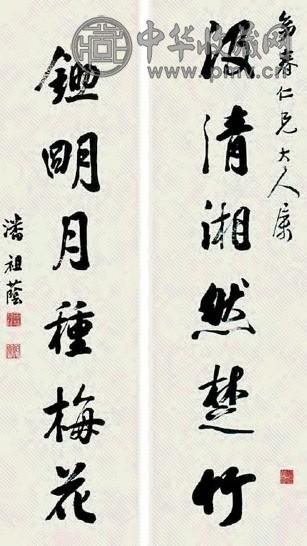 中华收藏网
春仁兄大人属
汲清湘然楚竹
鋤明月種梅花
潘祖蔭